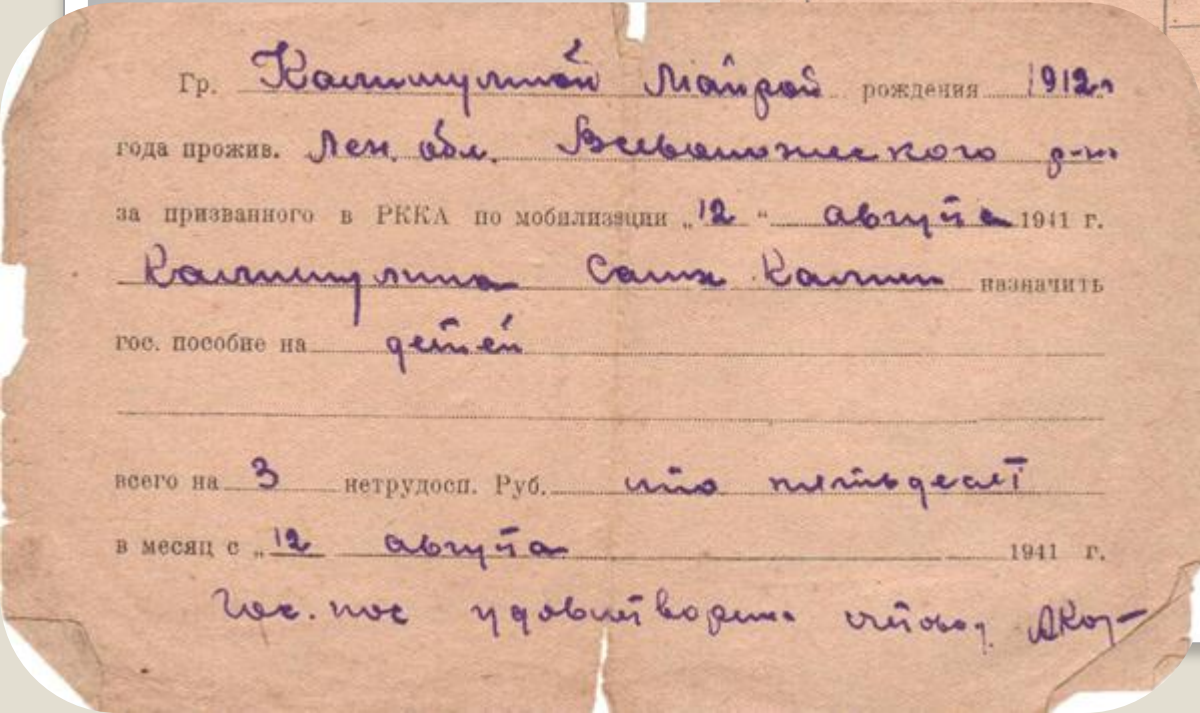 Гр. Калимулиной Майрой рождения 1912 г
года прожив. Лен. обл. Всеволожского р-на
за призванного в РККА по мобилизации „12“ августа 1941 г.
Калимулина Калим назначить
гос. пособие на детей
всего на 3 нетрудосп. Руб. сто пятьдесят
в месяц с „12 августа 1941 г.
Гос. пос удовлетворена